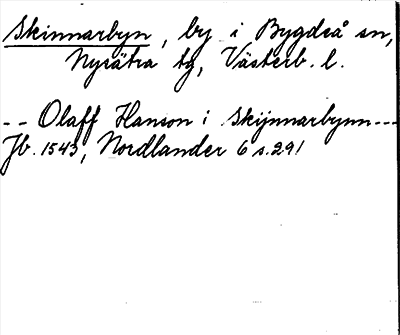 Skinnarbyn, by i Bygdeå sn,
Nysätra tg, Västerb. l.
-- Olaff Hanson i Skijnnarbynn---
Jb. 1543, Nordlander 6 s. 291